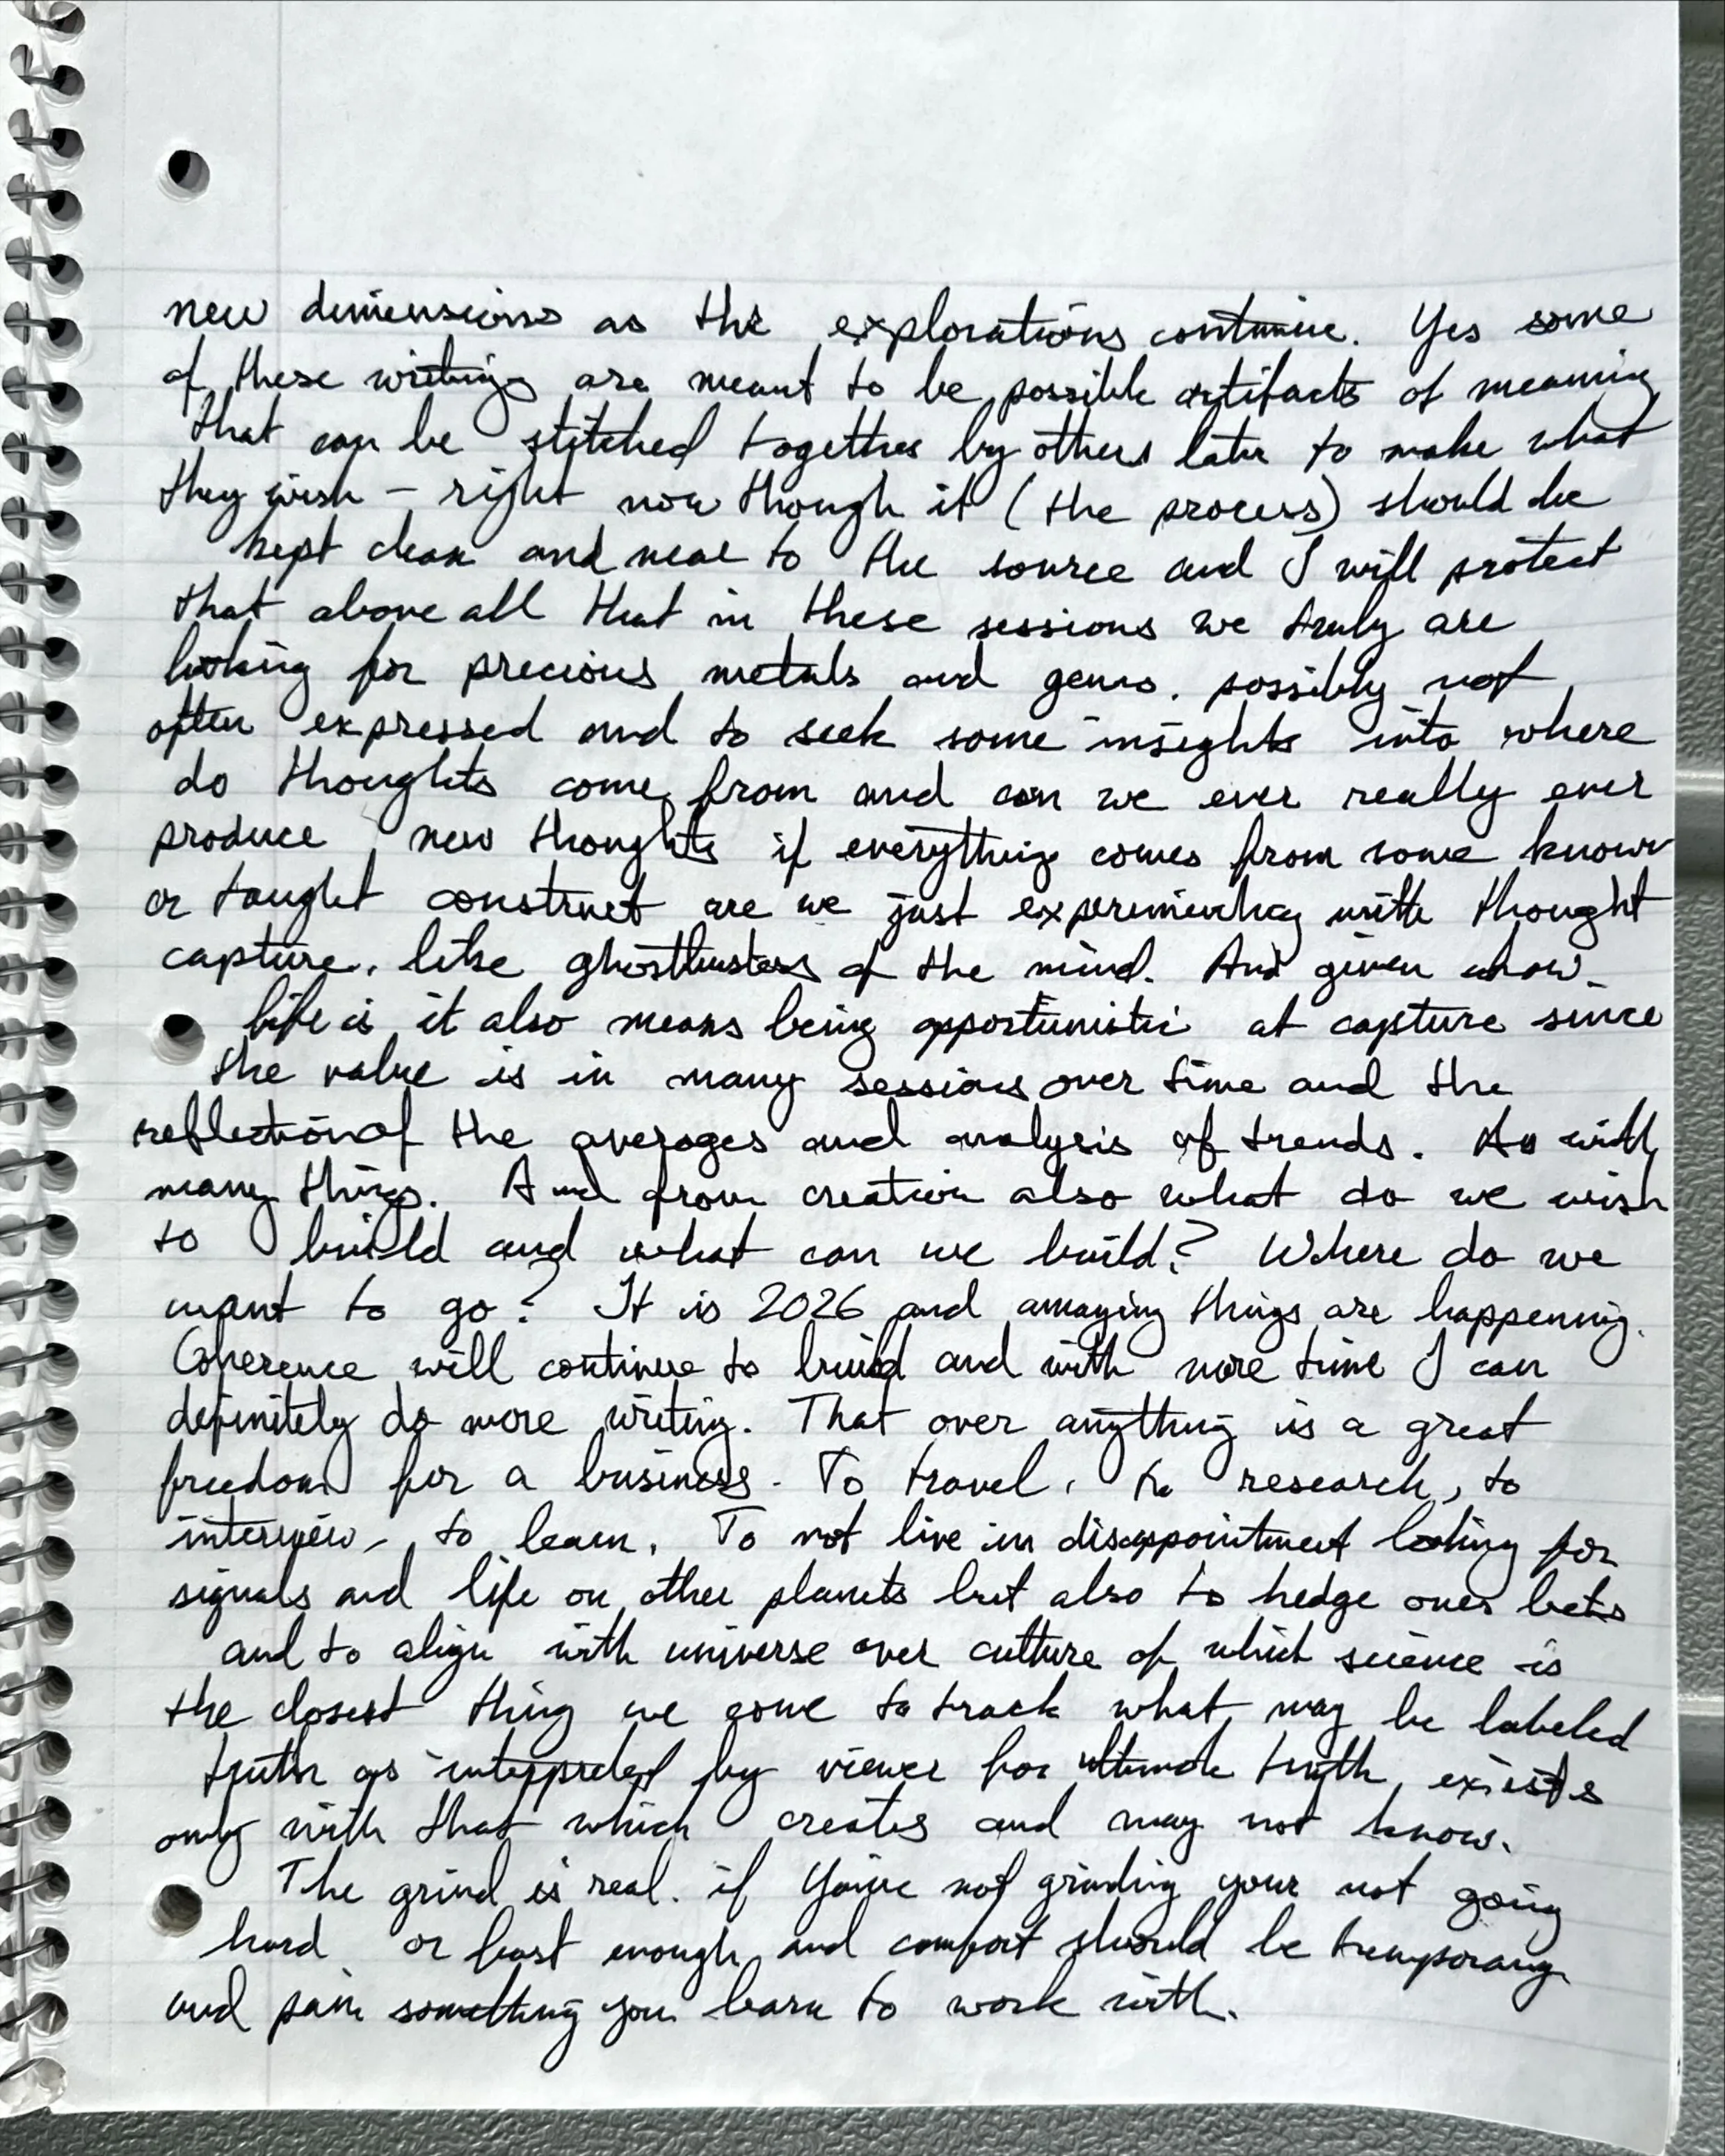 new dimensions as the explorations continue. Yes some
of these writings are meant to be possible artifacts of meaning
that can be stitched together by others later to make what
they wish – right now though it (the process) should be
kept clean and near to the source and I will protect
that above all that in these sessions we truly are
looking for precious metals and gems. possibly not
often expressed and to seek some insights into where
do thoughts come from and can we ever really ever
produce new thoughts if everything comes from some known
or taught construct are we just experimenting with thought
capture, like ghostbusters of the mind. And given how
life is it also means being opportunistic at capture since
the value is in many sessions over time and the
reflection of the averages and analysis of trends. As with
many things. And from creation also what do we wish
to build and what can we build? Where do we
want to go? It is 2026 and amazing things are happening.
Coherence will continue to build and with more time I can
definitely do more writing. That over anything is a great
freedom for a business. To travel, to research, to
interview, to learn. To not live in disappointment looking for
signals and life on other planets but also to hedge ones bets
and to align with universe over culture of which science is
the closest thing we to track what may be labeled
truth as interpreted by viewer for ultimate truth exists
only with that which creates and may not know.
The grind is real. if you're not grinding your not going
hard or fast enough and comfort should be temporary
and pain something you learn to work with.